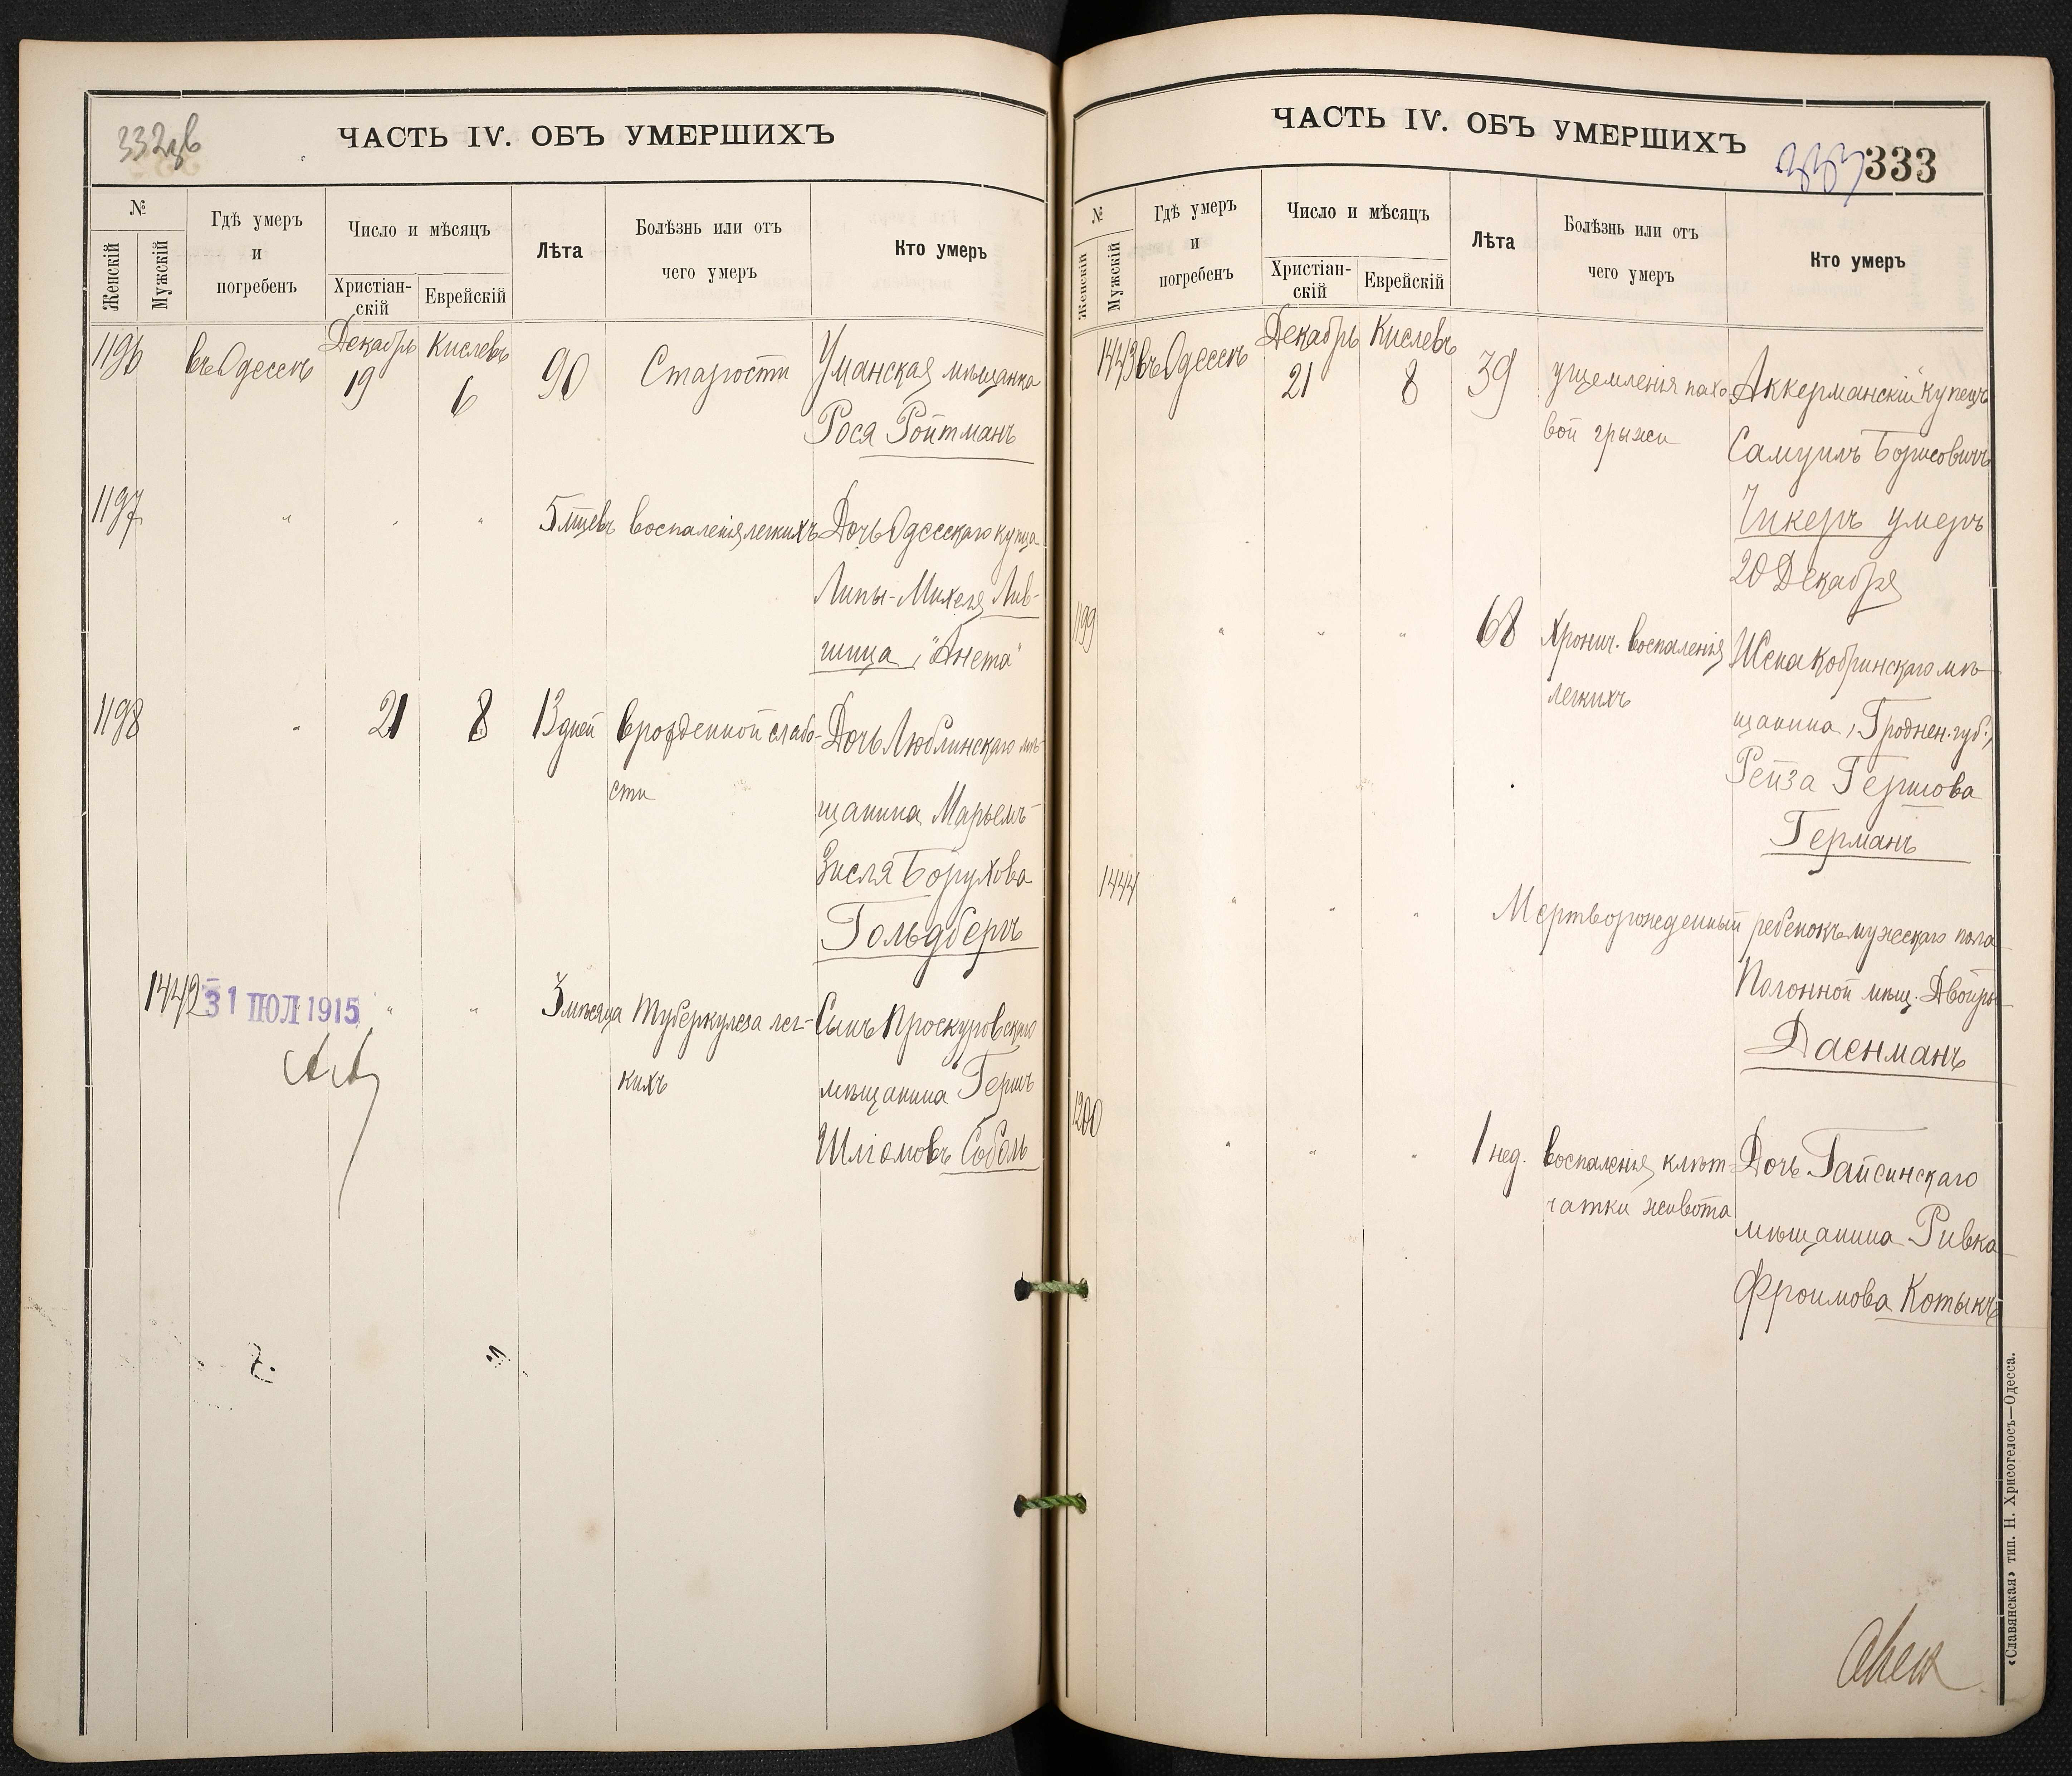 332 зв
ЧАСТЬ IV. ОБЪ УМЕРШИХЪ
№
Женскій
Мужскій
Гдѣ умеръ
и
погребенъ
Число и мѣсяцъ
Христіан-
скій
Еврейскій
Лѣта
Болѣзнь или отъ
чего умеръ
Кто умеръ
1196 въ Одессѣ Декабрь 19 Кислевъ 6 90 Старости Уманская мѣщанка
Рося Ройтманъ
1197 " " " 5 мѣсцевъ воспаленія легкихъ Дочь Одесскаго купца
Липы-Михеля Лив-
шица, "Анета"
1198 " 21 8 13 дней врожденной слабо- Дочь Люблинскаго мѣ-
сти щанина Марьемъ-
Зисля Борухова
Гольдбергъ
1442 31 ІЮЛ 1915 " " 3 мѣсяца туберкулеза лег- Сынъ Проскуровскаго
кихъ мѣщанина Гершъ
Шліомовъ Соболь
ЧАСТЬ IV. ОБЪ УМЕРШИХЪ
333 333
№
Женскій
Мужскій
Гдѣ умеръ
и
погребенъ
Число и мѣсяцъ
Христіан-
скій
Еврейскій
Лѣта
Болѣзнь или отъ
чего умеръ
Кто умеръ
1443 въ Одессѣ Декабрь 21 Кислевъ 8 39 ущемленія пахо- Аккерманскій купецъ
вой грыжи Самуилъ Борисовичъ
Чикеръ умеръ
20 Декабря
1199 " " " 68 Хронич. воспаленія Жена Кобринскаго мѣ-
легкихъ щанина, Гроднен. губ.,
Рейза Гершова
Германъ
1444 " " " Мертворожденный ребенокъ мужескаго пола
Полонной мѣщ. Двойры
Даенманъ
1200 " " " 1 нед. воспаленія клѣт- Дочь Гайсинскаго
чатки живота мѣщанина Ривка
Фроимова Котыкъ
«Славянская» тип. Н. Хрисогелосъ—Одесса.